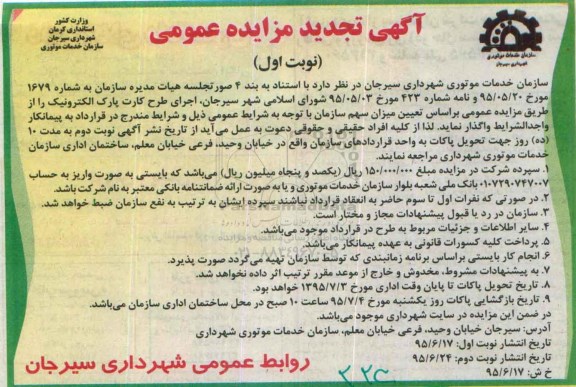 وزارت کشور
استانداری کرمان
شهرداری سیرجان
سازمان خدمات موتوری
آگهی تجدید مزایده عمومی
(نوبت اول)
سازمان خدمات موتوری
شهرداری سیرجان
سازمان خدمات موتوری شهرداری سیرجان در نظر دارد با استناد به بند ۴ صورتجلسه هیات مدیره سازمان به شماره ۱۶۷۹
مورخ ۹۵/۰۵/۲۰ و نامه شماره ۴۲۳ مورخ ۹۵/۰۵/۰۳ شورای اسلامی شهر سیرجان، اجرای طرح کارت پارک الکترونیک را از
طریق مزایده عمومی براساس تعیین میزان سهم سازمان با توجه به شرایط عمومی ذیل و شرایط مندرج در قرارداد به پیمانکار
واجدالشرایط واگذار نماید. لذا از کلیه افراد حقیقی و حقوقی دعوت به عمل می‌آید از تاریخ نشر آگهی نوبت دوم به مدت ۱۰
(ده) روز جهت تحویل پاکات به واحد قراردادهای سازمان واقع در خیابان وحید، فرعی خیابان معلم، ساختمان اداری سازمان
خدمات موتوری شهرداری مراجعه نمایند.
۱. سپرده شرکت در مزایده مبلغ ۱۵۰/۰۰۰/۰۰۰ ریال (یکصد و پنجاه میلیون ریال) می‌باشد که بایستی به صورت واریز به حساب
۰۱۰۷۲۹۰۷۴۷۰۰۷ بانک ملی شعبه بلوار سازمان خدمات موتوری و یا به صورت ارائه ضمانتنامه بانکی معتبر به نام شرکت باشد.
۲. در صورتی که نفرات اول تا سوم حاضر به انعقاد قرارداد نباشند سپرده ایشان به ترتیب به نفع سازمان ضبط خواهد شد.
۳. سازمان در رد یا قبول پیشنهادات مجاز و مختار است.
۴. سایر اطلاعات و جزئیات مربوط به طرح در قرارداد موجود می‌باشد.
۵. پرداخت کلیه کسورات قانونی به عهده پیمانکار می‌باشد.
۶. انجام کار بایستی براساس برنامه زمانبندی که توسط سازمان تهیه می‌گردد صورت پذیرد.
۷. به پیشنهادات مشروط، مخدوش و خارج از موعد مقرر ترتیب اثر داده نخواهد شد.
۸. تاریخ تحویل پاکات تا پایان وقت اداری مورخ ۱۳۹۵/۷/۳ خواهد بود.
۹. تاریخ بازگشایی پاکات روز یکشنبه مورخ ۹۵/۷/۴ ساعت ۱۰ صبح در محل ساختمان اداری سازمان می‌باشد.
در ضمن این مزایده در سایت شهرداری موجود می‌باشد.
آدرس: سیرجان خیابان وحید، فرعی خیابان معلم، سازمان خدمات موتوری شهرداری
تاریخ انتشار نوبت اول: ۹۵/۶/۱۷
تاریخ انتشار نوبت دوم: ۹۵/۶/۲۴
خ ش: ۹۵/۶/۱۷
روابط عمومی شهرداری سیرجان